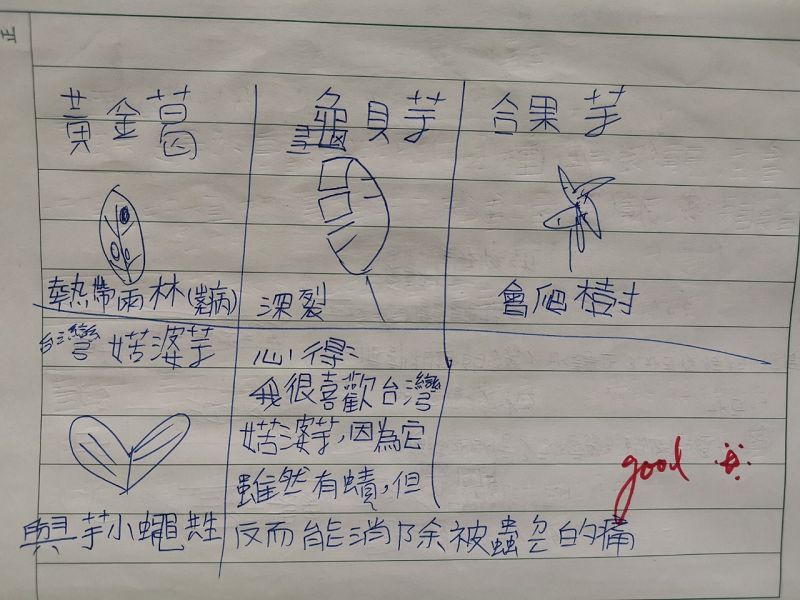 正
黃金葛
龜貝芋
合果芋
熱帶雨林(葉病)
深裂
會爬樹
台灣姑婆芋
與芋小蠅共生
心得:
我很喜歡台灣
姑婆芋,因為它
雖然有蟯,但
反而能消除被蟲包的痛
good